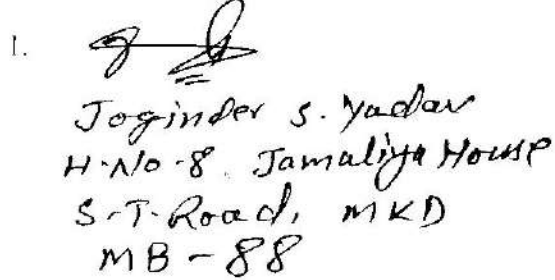 1.
Joginder S. Yadav
H.No-8. Jamaliya House
S.T. Road, MKD
MB-88